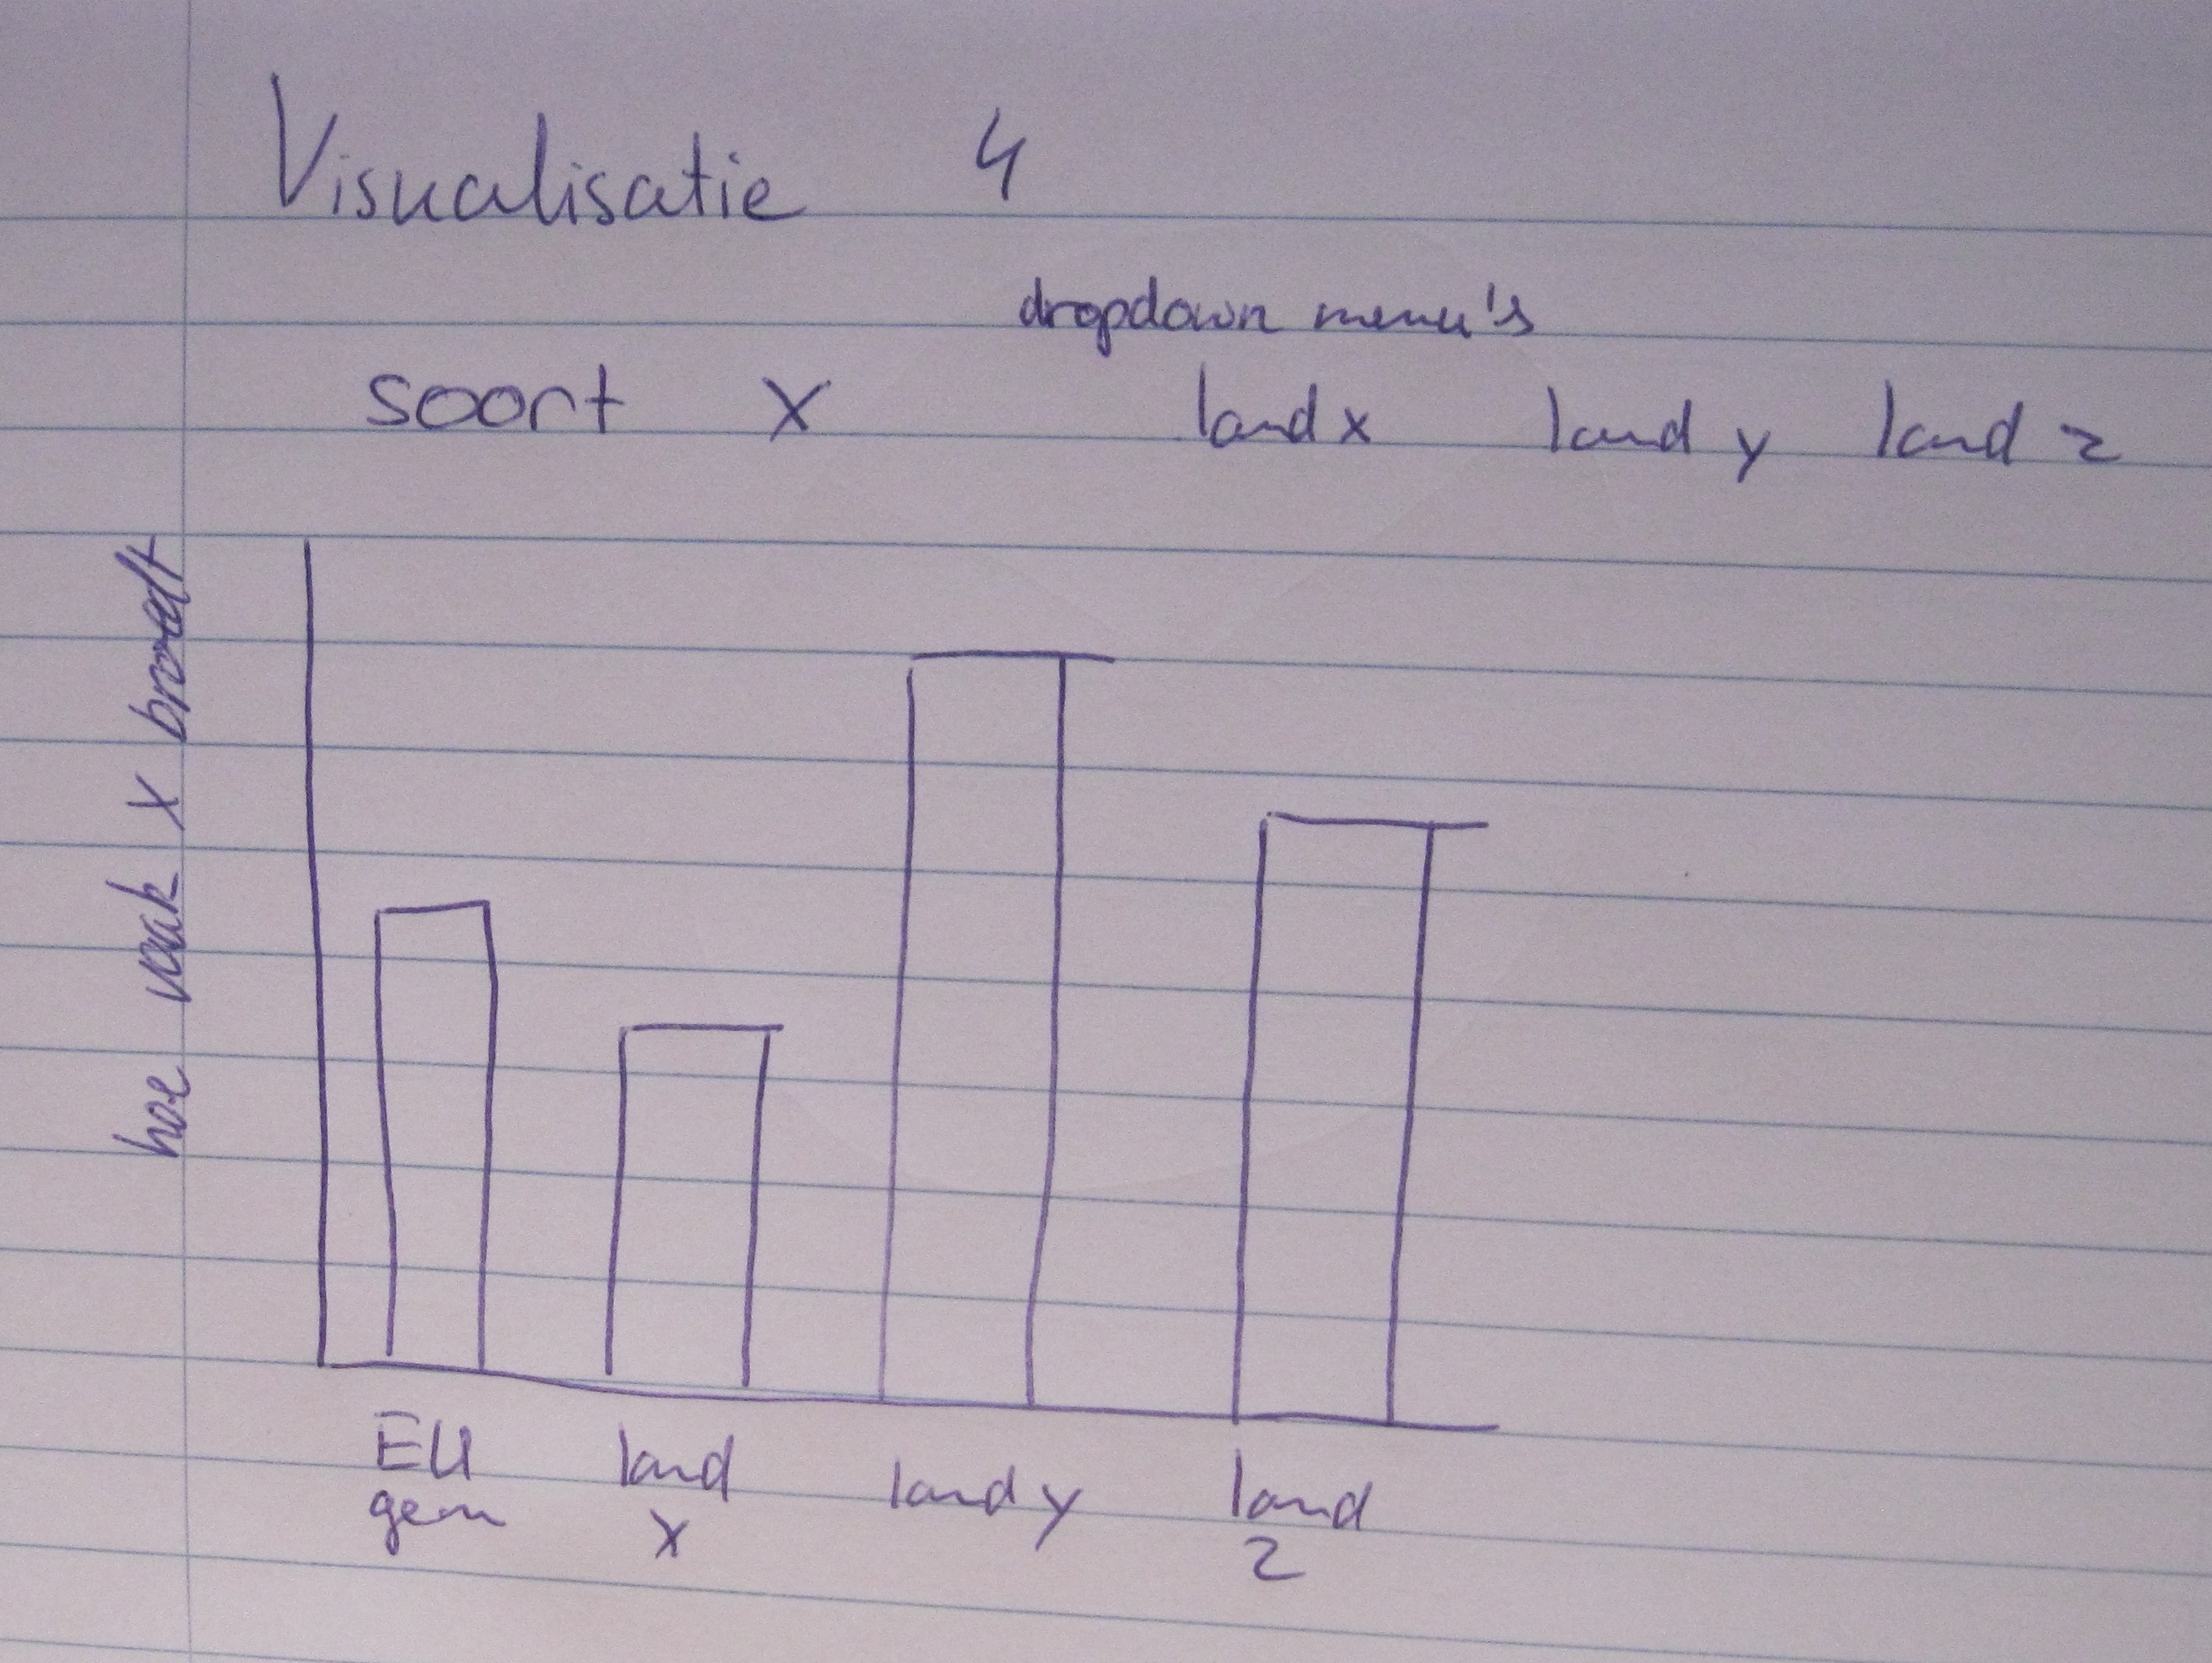 Visualisatie 4
dropdown menu's
soort X land x land y land z
hoe vaak X broedt
EU land land y land
gem x z